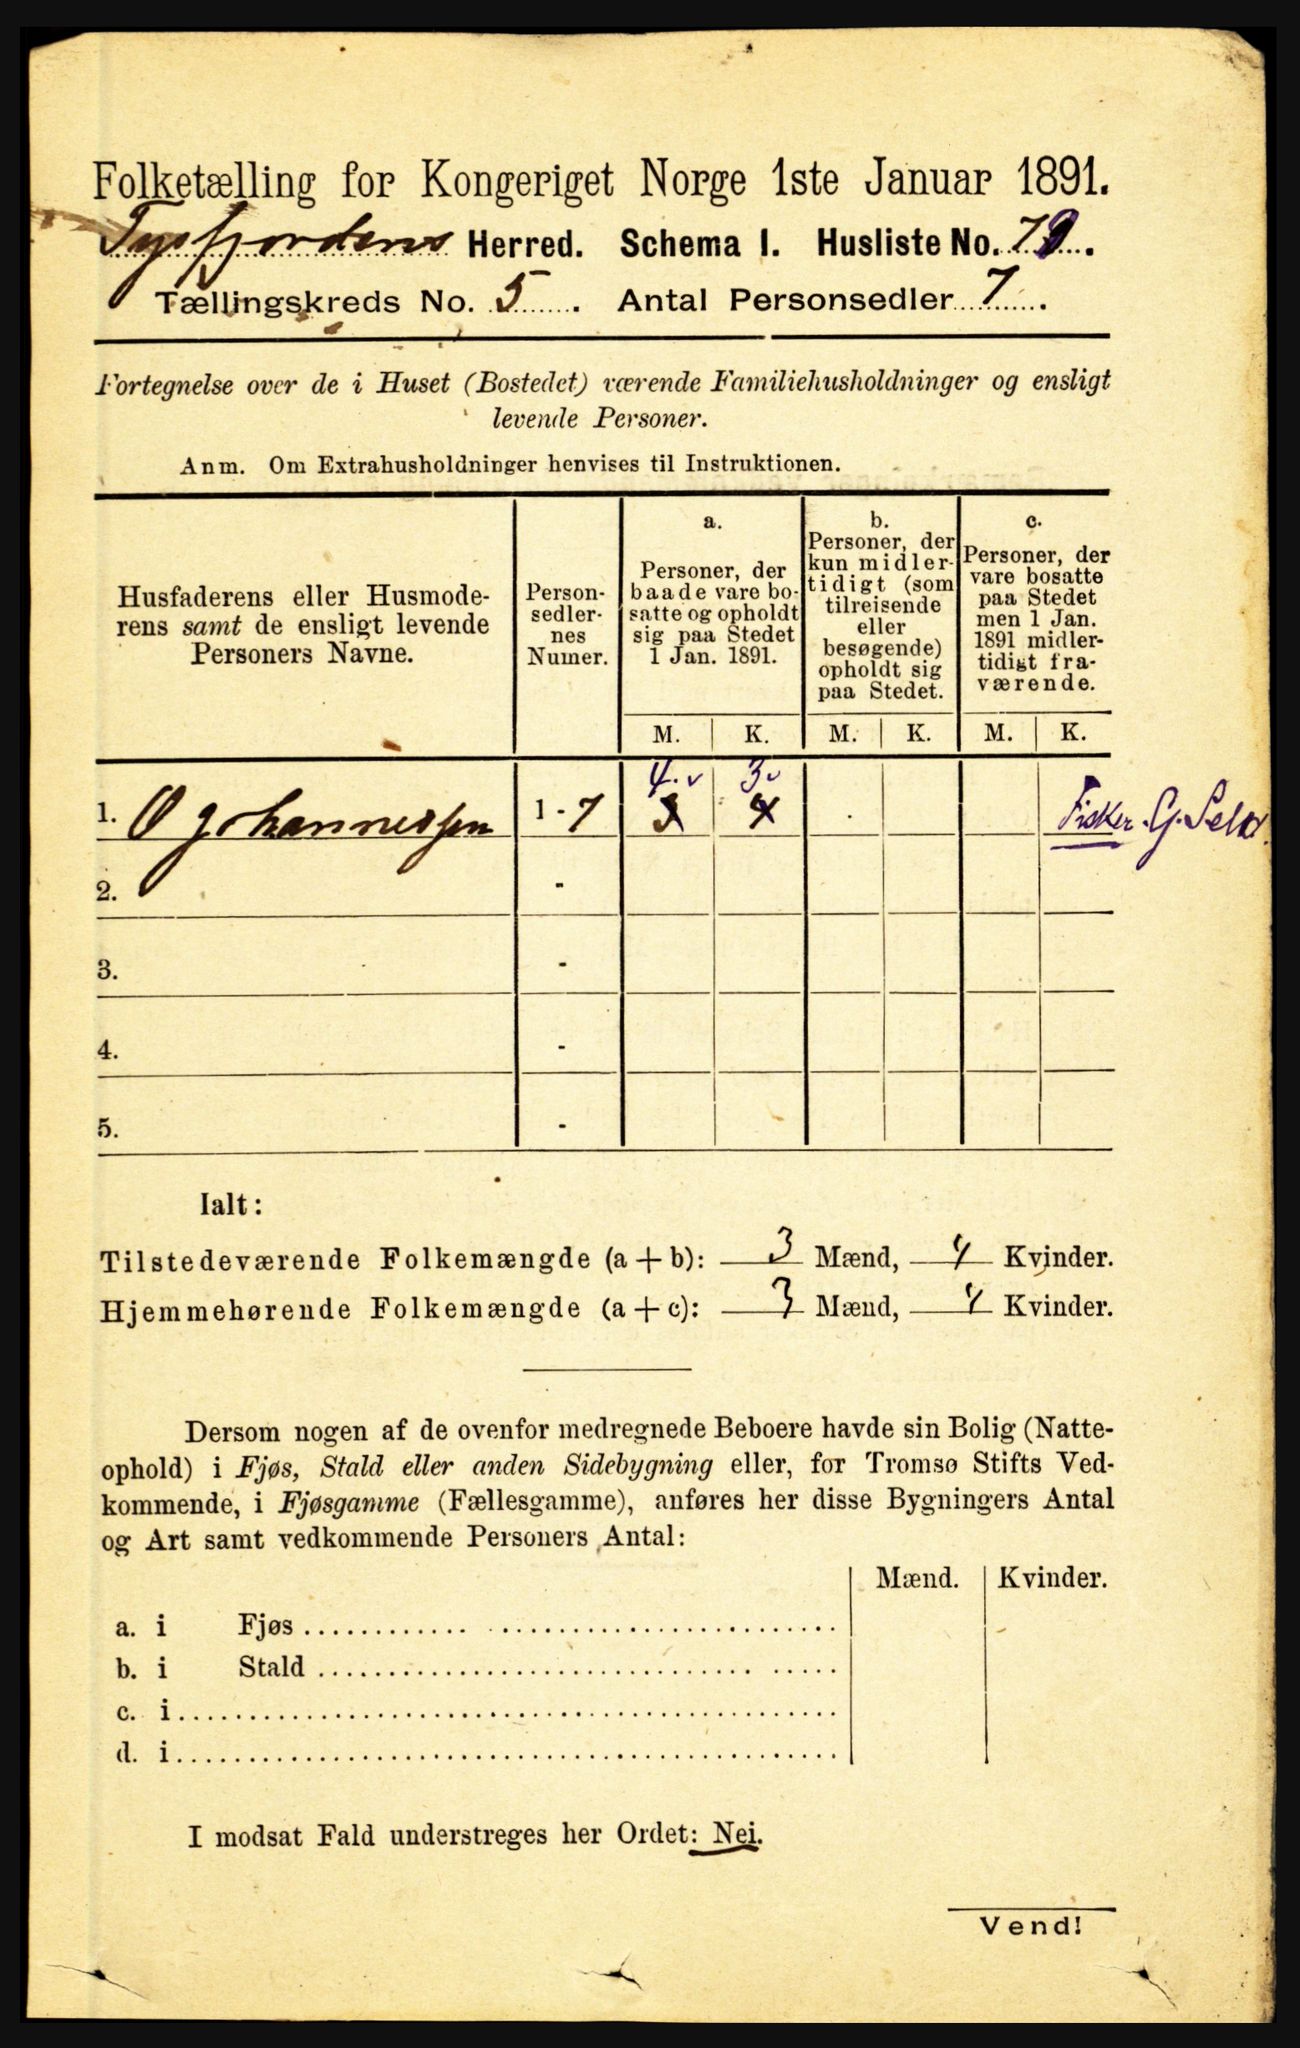 Folketælling for Kongeriget Norge 1ste Januar 1891.
Tysfjordens Herred. Schema I. Husliste No. 79.
Tællingskreds No. 5. Antal Personsedler 7.
Fortegnelse over de i Huset (Bostedet) værende Familiehusholdninger og ensligt
levende Personer.
Anm. Om Extrahusholdninger henvises til Instruktionen.
Husfaderens eller Husmode-
rens samt de ensligt levende
Personers Navne.
Person-
sedler-
nes
Numer.
a.
Personer, der
baade vare bo-
satte og opholdt
sig paa Stedet
1 Jan. 1891.
b.
Personer, der
kun midler-
tidigt (som
tilreisende
eller
besøgende)
opholdt sig
paa Stedet.
c.
Personer, der
vare bosatte
paa Stedet
men 1 Jan.
1891 midler-
tidigt fra-
værende.
M. K. M. K. M. K.
4. v 3 v
1. O Johannessen 1 - 7 3 4 Fisker. G. Selv.
2. -
3. -
4. -
5. -
Ialt:
Tilstedeværende Folkemængde (a + b): 3 Mænd, 4 Kvinder.
Hjemmehørende Folkemængde (a + c): 3 Mænd, 4 Kvinder.
Dersom nogen af de ovenfor medregnede Beboere havde sin Bolig (Natte-
ophold) i Fjøs, Stald eller anden Sidebygning eller, for Tromsø Stifts Ved-
kommende, i Fjøsgamme (Fællesgamme), anføres her disse Bygningers Antal
og Art samt vedkommende Personers Antal:
Mænd. Kvinder.
a. i Fjøs
b. i Stald
c. i
d. i
I modsat Fald understreges her Ordet: Nei.
Vend!